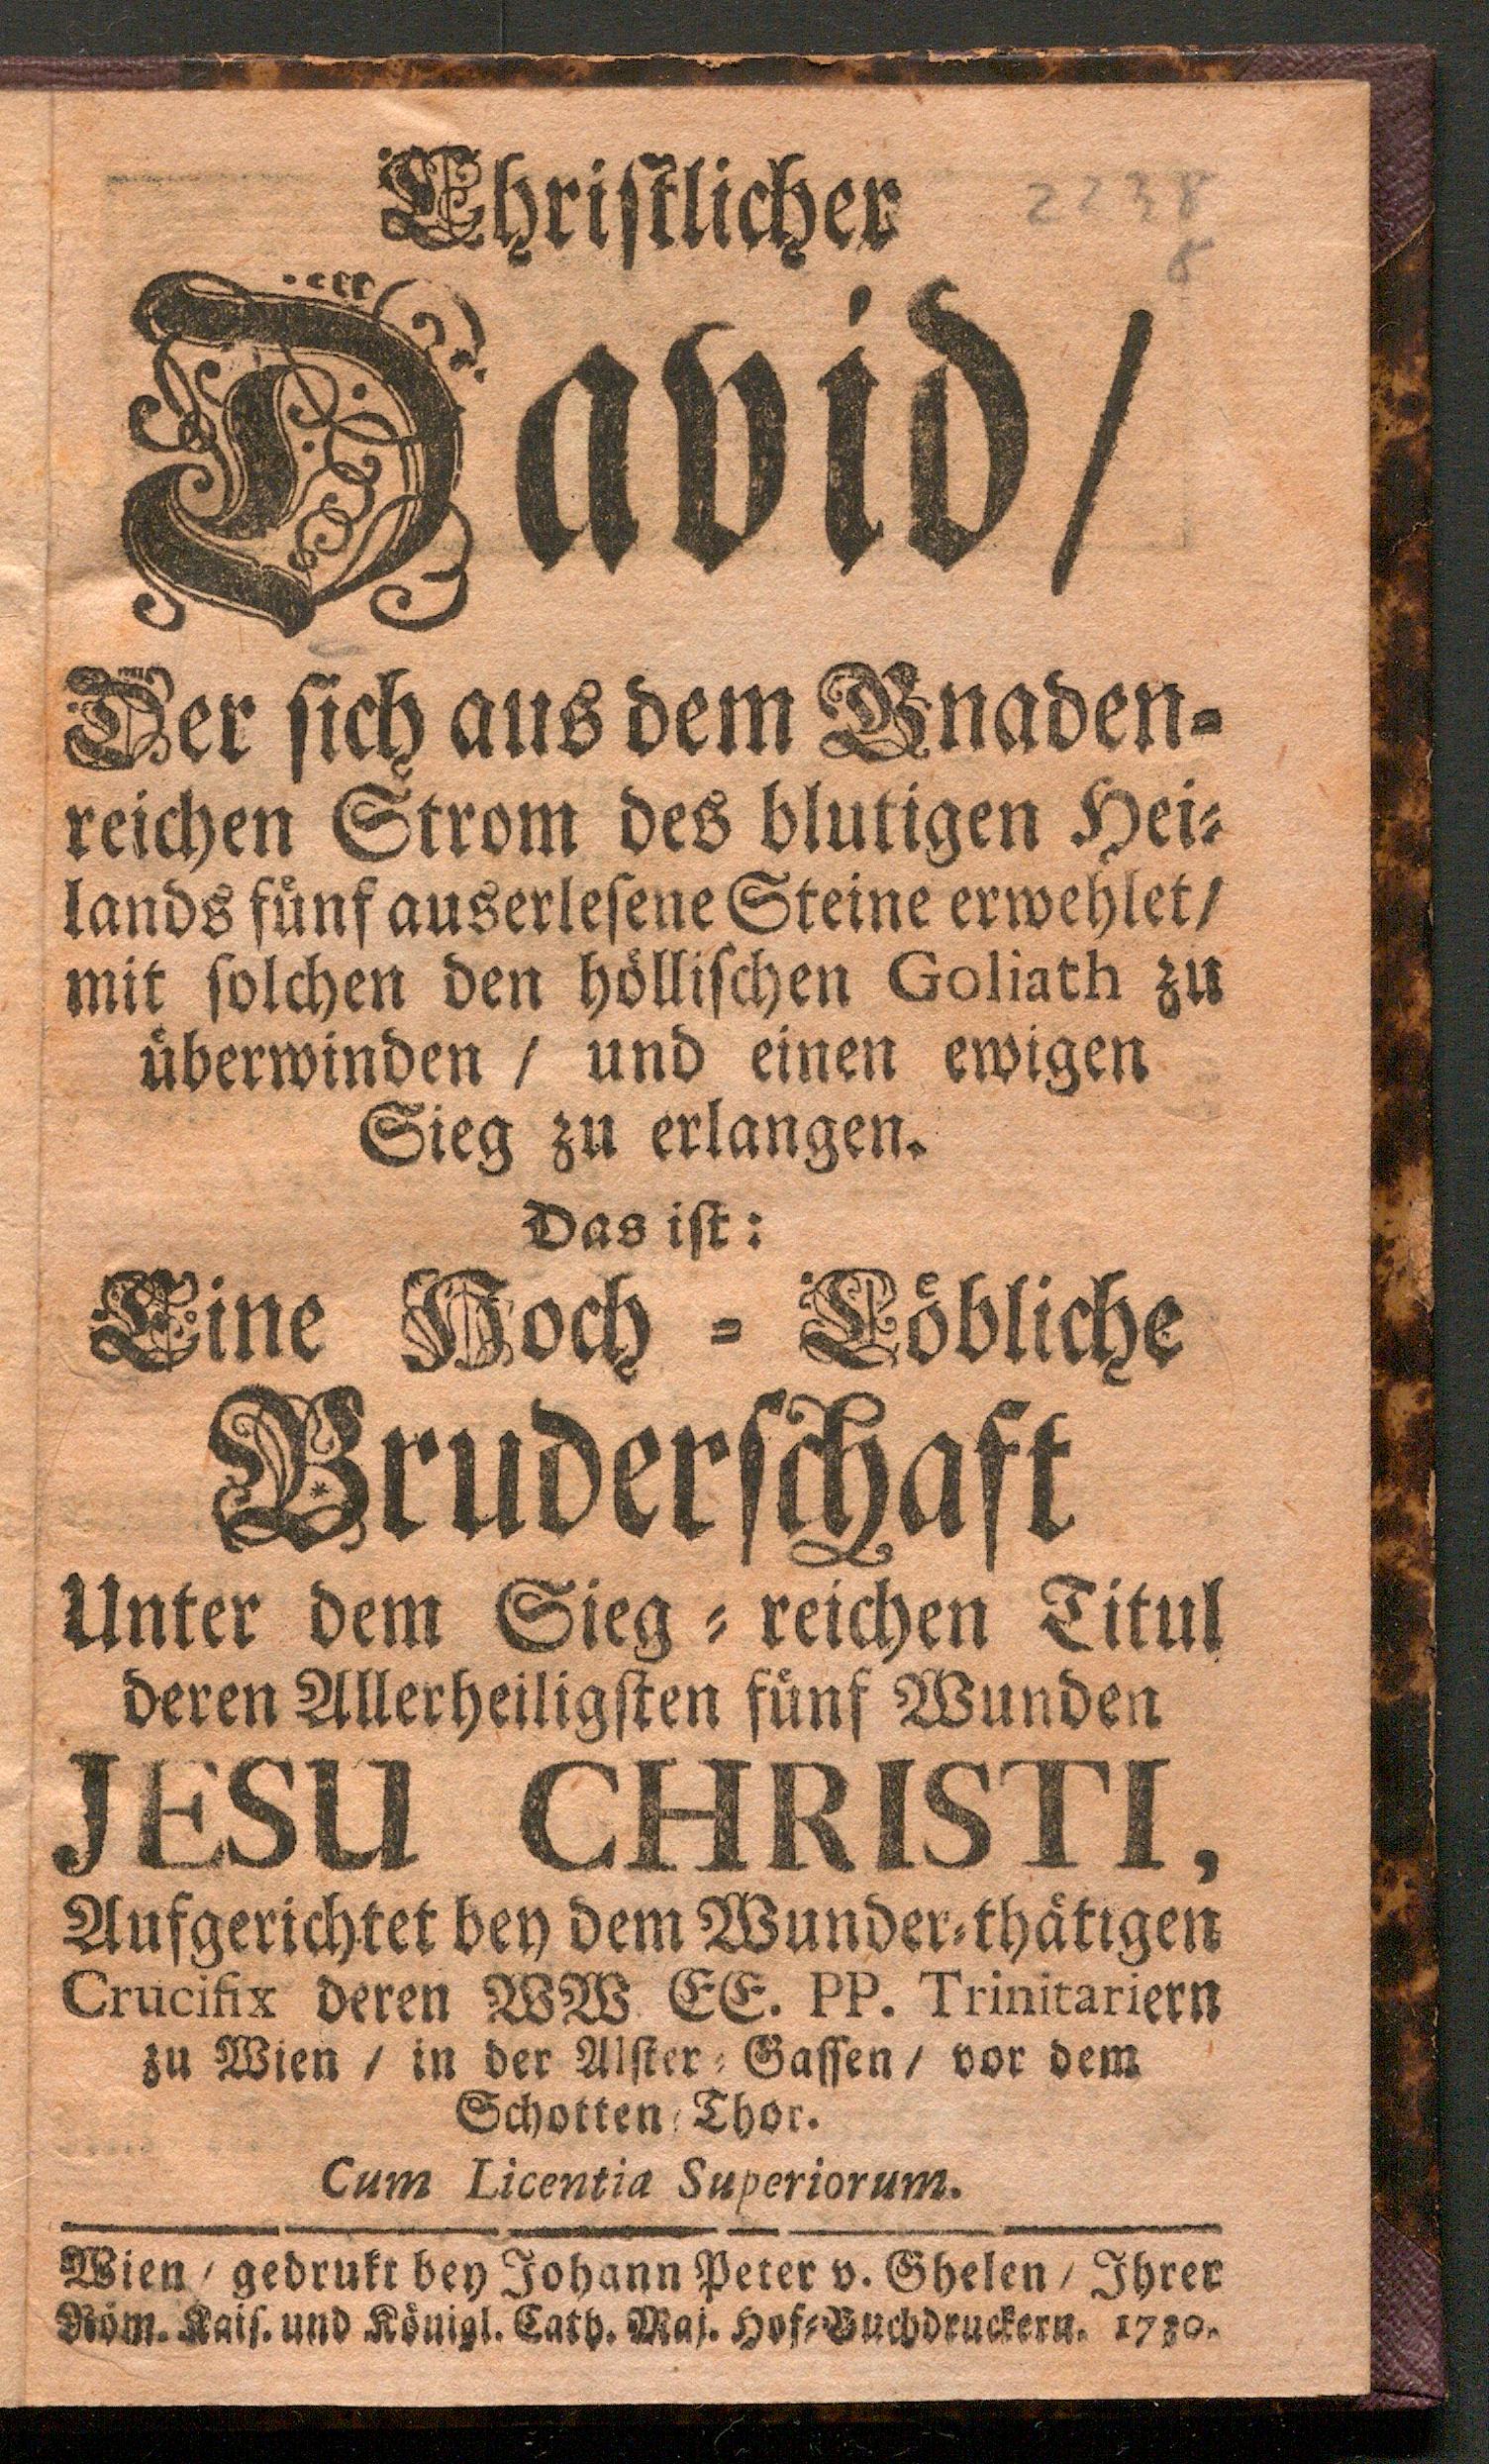 Chriſtlicher
David/
Der ſich aus dem Gnaden-
reichen Strom des blutigen Hei-
lands fuͤnf auserleſene Steine erwehlet/
mit ſolchen den hoͤlliſchen Goliath zu
uͤberwinden / und einen ewigen
Sieg zu erlangen.
Das iſt:
Eine Hoch-Loͤbliche
Bruderſchaft
Unter dem Sieg-reichen Titul
deren Allerheiligſten fuͤnf Wunden
JESU CHRISTI,
Aufgerichtet bey dem Wunder-thaͤtigen
Crucifix deren WW EE. PP. Trinitariern
zu Wien / in der Alſter-Gaſſen / vor dem
Schotten-Thor.
Cum Licentia Superiorum.
Wien / gedrukt bey Johann Peter v. Ghelen / Ihrer
Roͤm. Kaiſ. und Koͤnigl. Cath. Maj. Hof-Buchdruckern. 1730.
2238
8